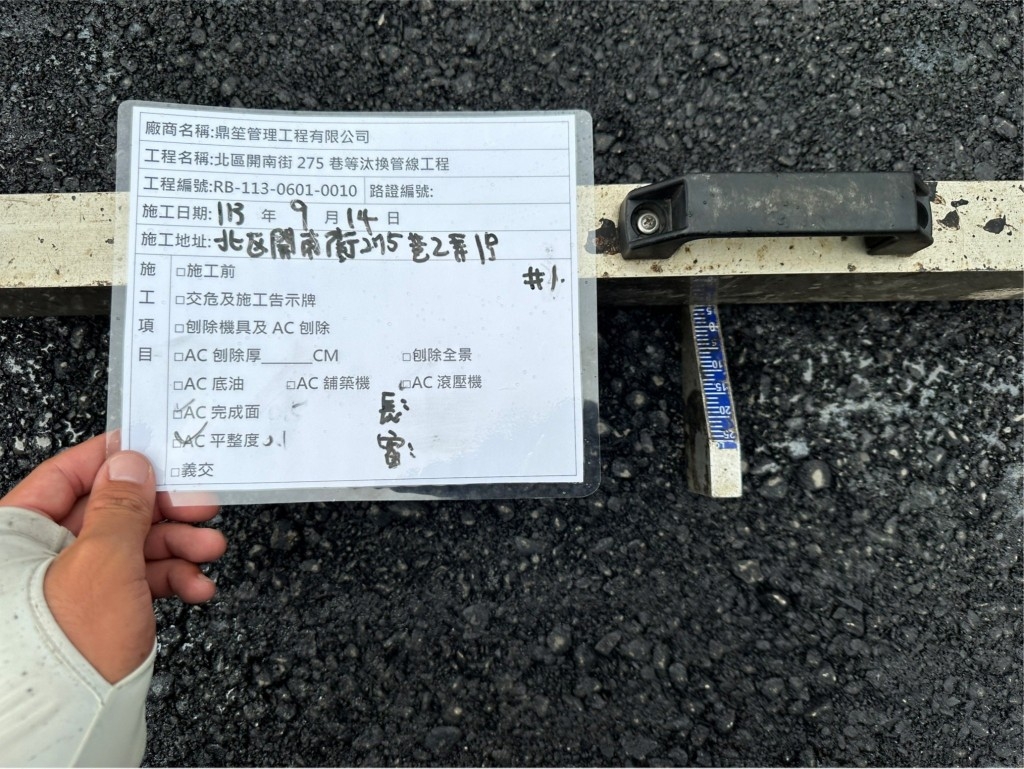 廠商名稱:鼎笙管理工程有限公司
工程名稱:北區開南街 275 巷等汰換管線工程
工程編號:RB-113-0601-0010 路證編號:
施工日期:113 年 9 月 14 日
施工地址:北區開南街275巷2弄1号
#1.
施工項目
□施工前
□交危及施工告示牌
□刨除機具及 AC 刨除
□AC 刨除厚______CM □刨除全景
□AC 底油 □AC 鋪築機 □AC 滾壓機
☑AC 完成面 長:
☑AC 平整度 0.1 寬:
□義交
5
10
15
20
25